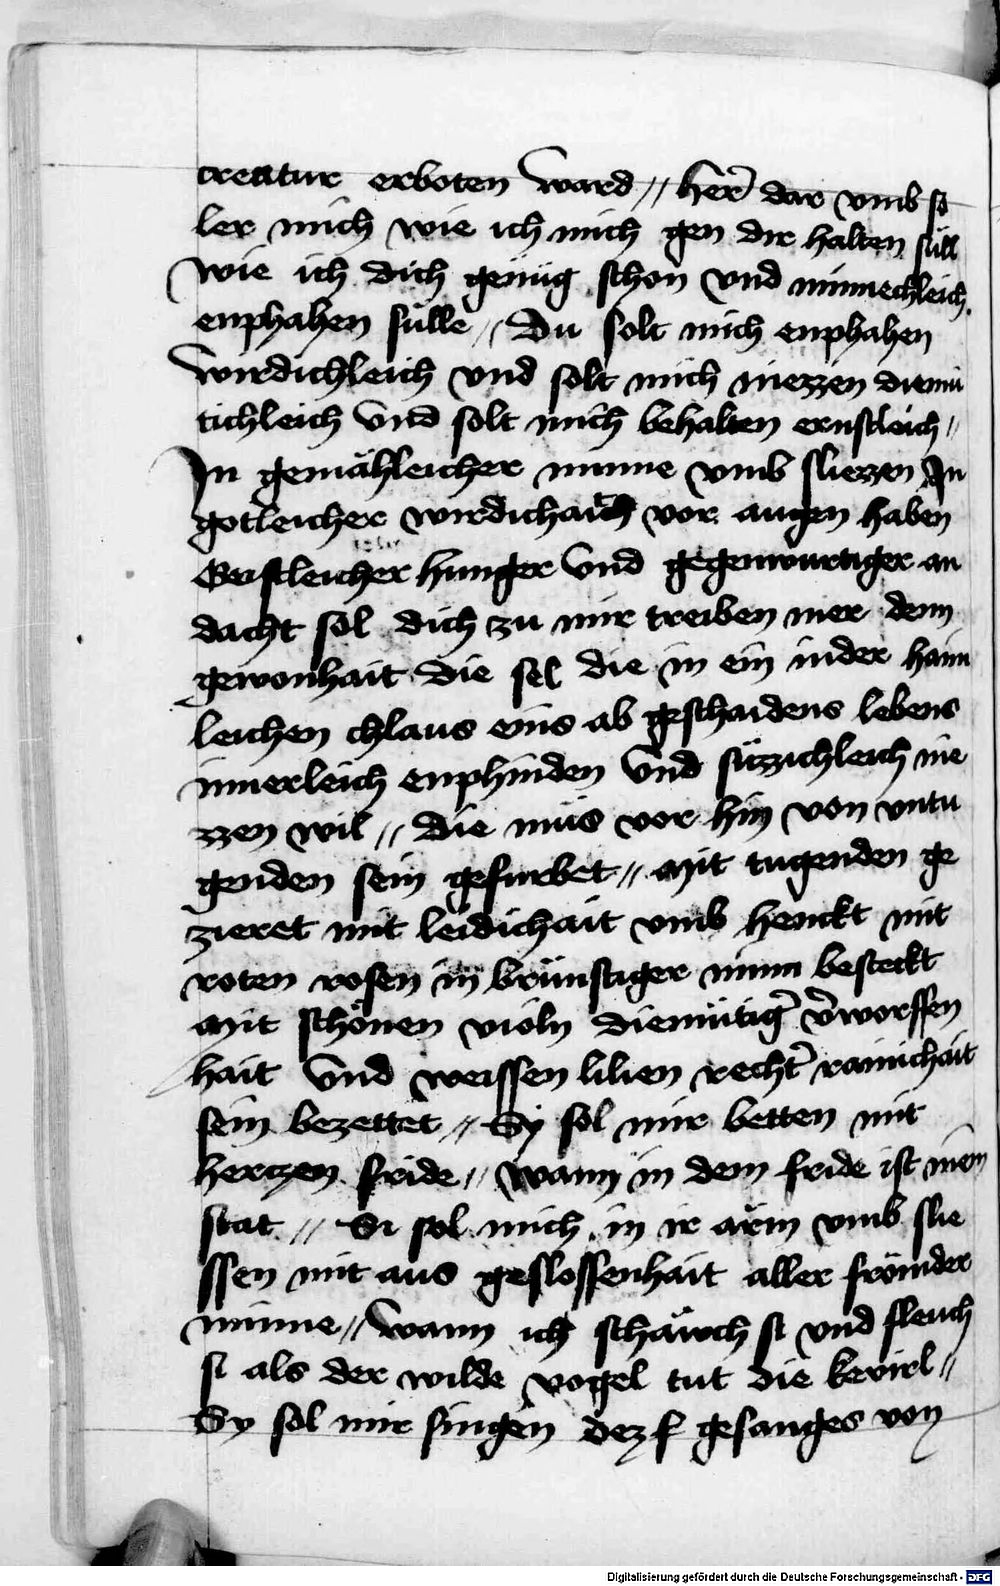 creatur erboten ward // her̄ dar vmb so
ler mich wie ich mich gen dir halten süll
wie ich dich genüg schon vnd minnechleich
enphahen sülle // Du solt mich enphahen
wirdichleich vnd solt mich niezzen diemü
tichleich vnd solt mich behalten ernstleich //
In gemähleicher minne vmb sliezzen In
gotleicher wirdichait vor augen haben
Geistleicher hunger vnd gegenwurtiger an
dacht sol dich zu mir treiben mer denn
gewonhait die sel die in ein inder haim
leichen chlaus eins ab geschaidens lebens
innerleich enphinden vnd sitzzichleich nie
zzen wil // die müs vor hin von vntu
genden sein gefurbet // Mit tugenden ge
zieret mit ledichait vmb henckt mit
roten rosen in brünstiger minn besteckt
Mit schönen violn diemütiger̄ v̄worffen
hait vnd weissen lilien recht̄ rainichait
sein bezettet // Sy sol mir betten mit
hertzen fride // wann in dem fride ist mein
stat // Si sol mich in ir ärm vmb slie
ssen mit aus geslossenhait aller frömder
minne // wann ich schäwch si vnd fleuch
si als der wilde vogel tut die kevirl //
Sy sol mir singen dez gesanges von
Digitalisierung gefördert durch die Deutsche Forschungsgemeinschaft - DFG